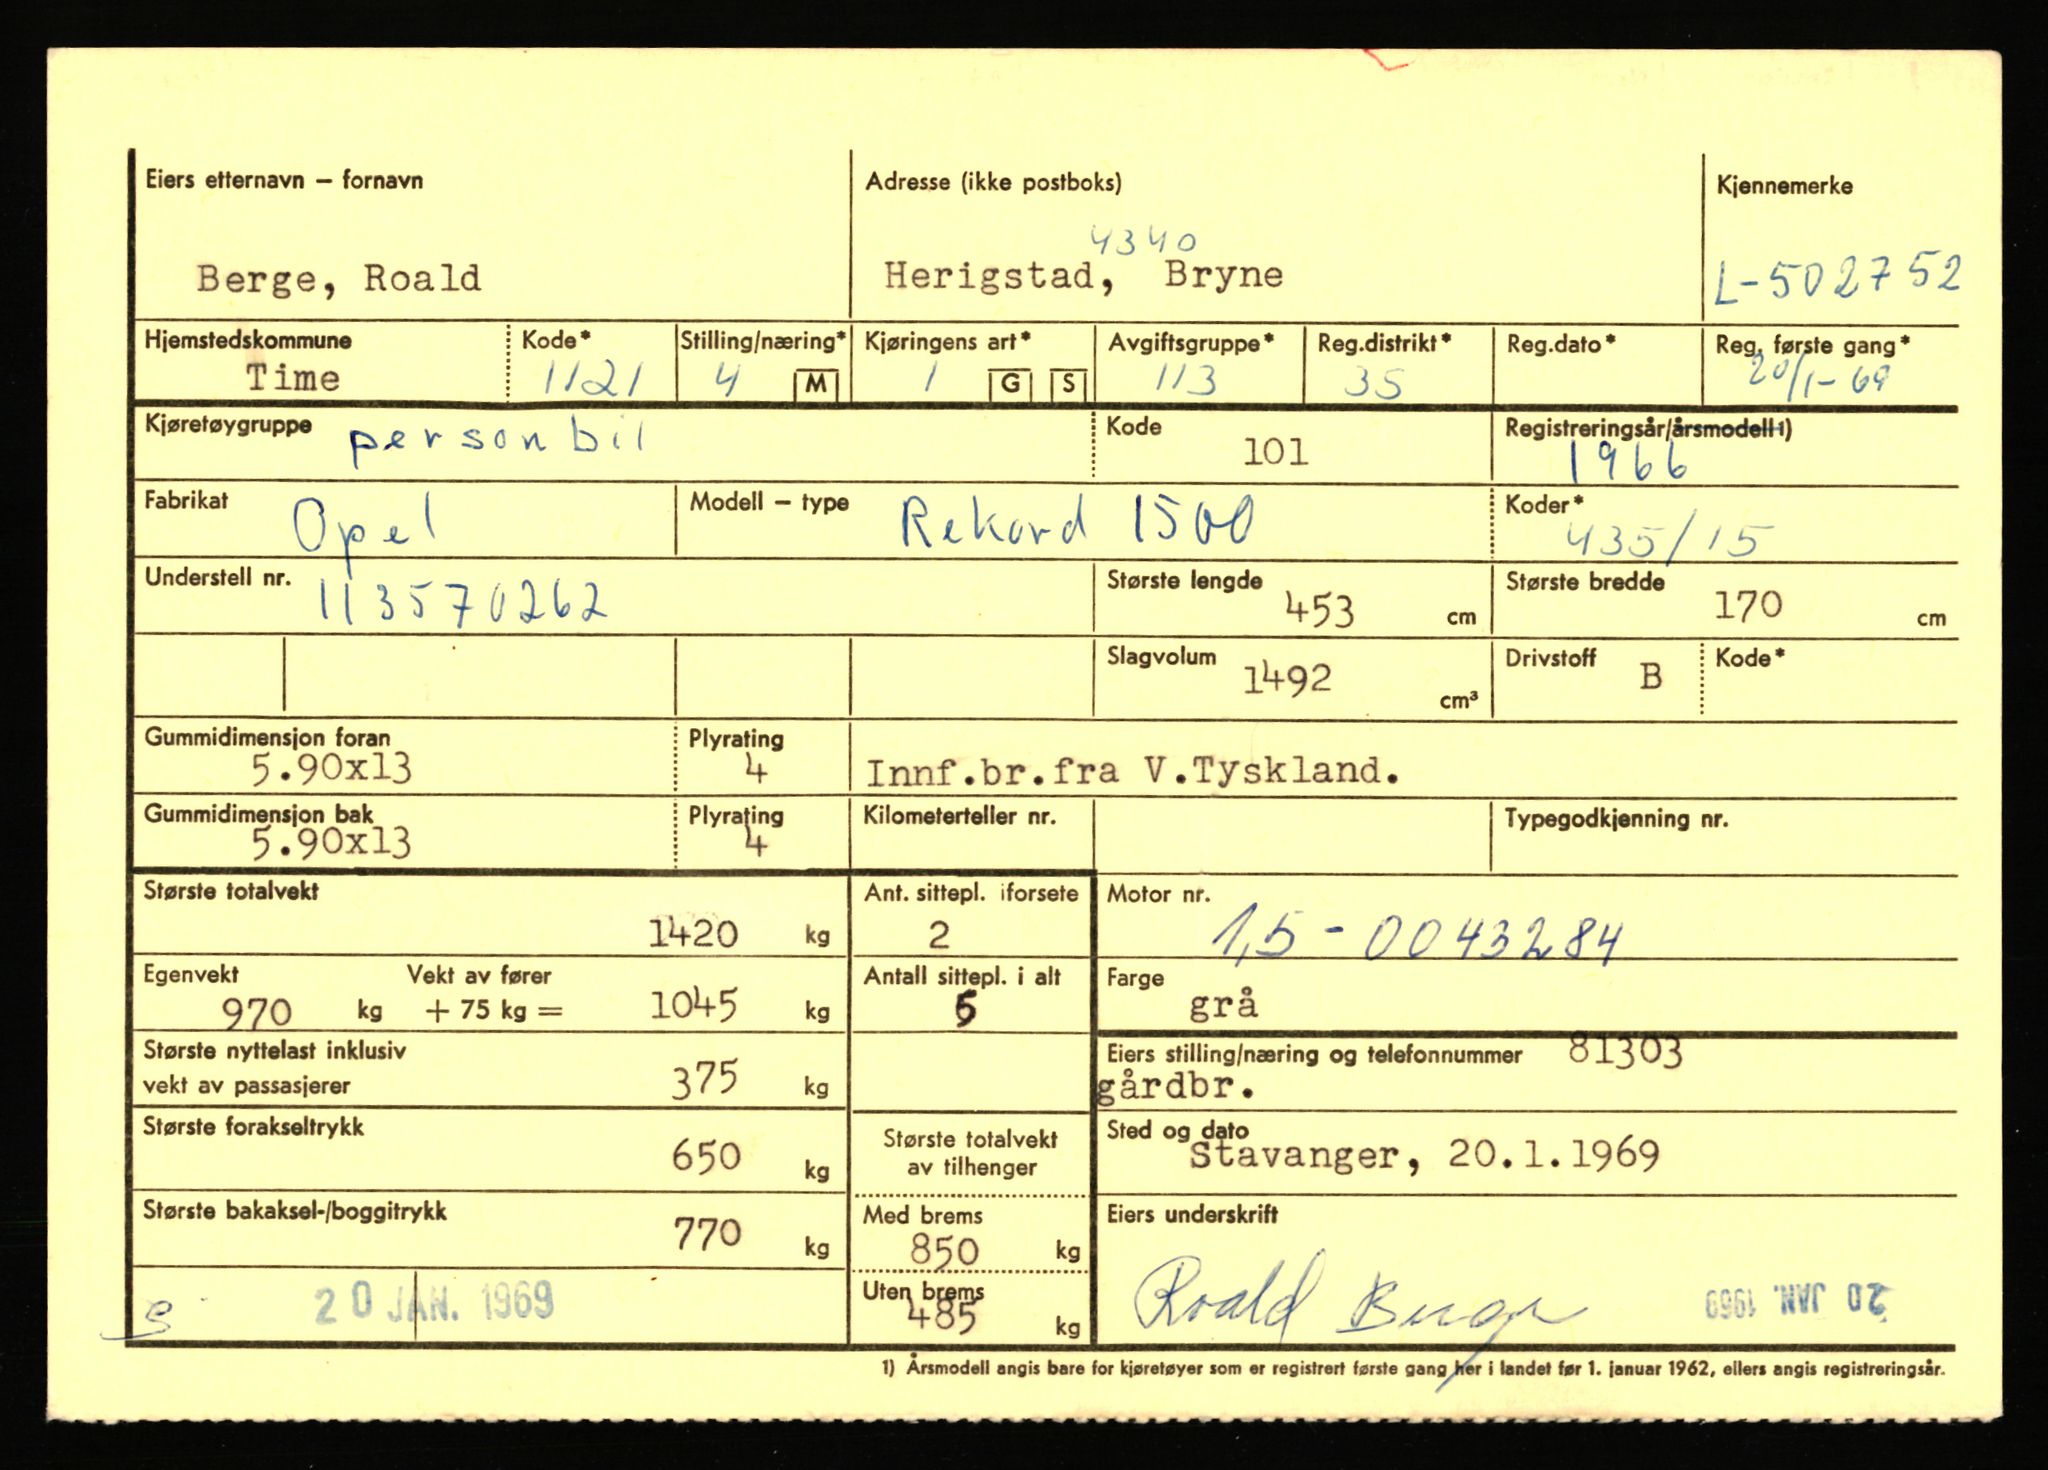 Eiers etternavn – fornavn
Adresse (ikke postboks)
Kjennemerke
4340
Berge, Roald
Herigstad, Bryne
L-502752
Hjemstedskommune Kode* Stilling/næring* Kjøringens art* Avgiftsgruppe* Reg.distrikt* Reg.dato* Reg. første gang*
Time 1121 4 M 1 G S 113 35 20/1-69
Kjøretøygruppe personbil Kode 101 Registreringsår/årsmodell 1) 1966
Fabrikat Opel Modell – type Rekord 1500 Koder* 435/15
Understell nr. 113570262 Største lengde 453 cm Største bredde 170 cm
Slagvolum 1492 cm³ Drivstoff B Kode*
Gummidimensjon foran Plyrating
5.90x13 4 Innf.br.fra V.Tyskland.
Gummidimensjon bak Plyrating Kilometerteller nr. Typegodkjenning nr.
5.90x13 4
Største totalvekt 1420 kg
Ant. sittepl. iforsete 2
Motor nr. 1,5-0043284
Egenvekt 970 kg Vekt av fører + 75 kg = 1045 kg
Antall sittepl. i alt 5
Farge grå
Største nyttelast inklusiv
vekt av passasjerer 375 kg
Eiers stilling/næring og telefonnummer 81303
gårdbr.
Største forakseltrykk 650 kg
Største totalvekt
av tilhenger
Sted og dato
Stavanger, 20.1.1969
Største bakaksel-/boggitrykk 770 kg
Med brems
850 kg
Eiers underskrift
Uten brems
485 kg
S 20 JAN. 1969
Roald Berge
20 JAN. 1969
1) Årsmodell angis bare for kjøretøyer som er registrert første gang her i landet før 1. januar 1962, ellers angis registreringsår.